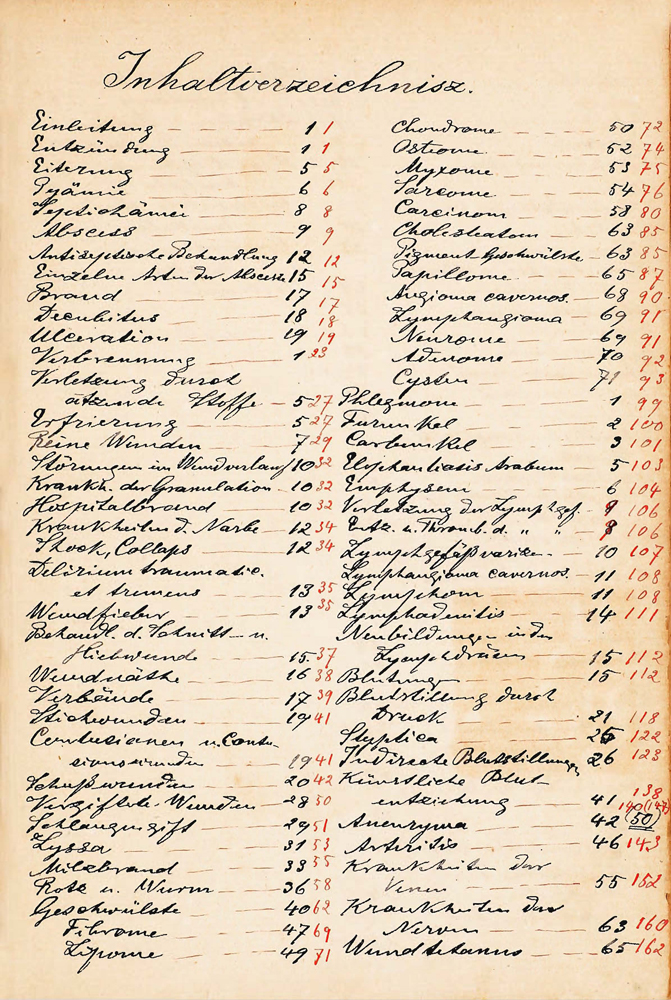 Inhaltverzeichnisz.
Einleitung 1 1
Entzündung 1 1
Eiterung 5 5
Pyämie 6 6
Septichämie 8 8
Abscess 9 9
Antiseptische Behandlung 12 12
Einzelne Arten der Abscesse 15 15
Brand 17 17
Decubitus 18 18
Ulceration 19 19
Verbrennung 1 23
Verletzung durch
ätzende Stoffe 5 27
Erfrierung 5 27
Reine Wunden 7 29
Störungen im Wundverlauf 10 32
Krankh. der Granulation 10 32
Hospitalbrand 10 32
Krankheiten d. Narbe 12 34
Shock, Collaps 12 34
Delirium traumatic.
et tremens 13 35
Wundfieber 13 35
Behandl. d. Schnitt- u.
Hiebwunde 15 37
Wundnäthe 16 38
Verbände 17 39
Stichwunden 19 41
Contusionen u. Contu-
sionswunden 19 41
Schußwunden 20 42
Vergiftete Wunden 28 50
Schlangengift 29 51
Lyssa 31 53
Milzbrand 33 55
Rotz u. Wurm 36 58
Geschwülste 40 62
Fibrome 47 69
Lipome 49 71
Chondrome 50 72
Osteome 52 74
Myxome 53 75
Sarcome 54 76
Carcinom 58 80
Cholesteatom 63 85
Pigment Geschwülste 63 85
Papillome 65 87
Angioma cavernos. 68 90
Lymphangioma 69 91
Neurome 69 91
Adenome 70 92
Cysten 71 93
Phlegmone 1 99
Furunkel 2 100
Carbunkel 3 101
Elephantiasis Arabum 5 103
Emphysem 6 104
Verletzung der Lymphgef. 9 106
Entz. u. Thromb. d. " " 8 106
Lymphgefäßvarixen 10 107
Lymphangioma cavernos. 11 108
Lymphom 11 108
Lymphadenitis 14 111
Neubildungen in den
Lymphdrüsen 15 112
Blutungen 15 112
Blutstillung durch
Druck 21 118
Styptica 25 122
Indirecte Blutstillungen 26 123
Künstliche Blut-
entziehung 41 138
Aneurysma 42 (50) 140 (147)
Arteriitis 46 143
Krankheiten der
Venen 55 152
Krankheiten der
Nerven 63 160
Wundtetanus 65 162